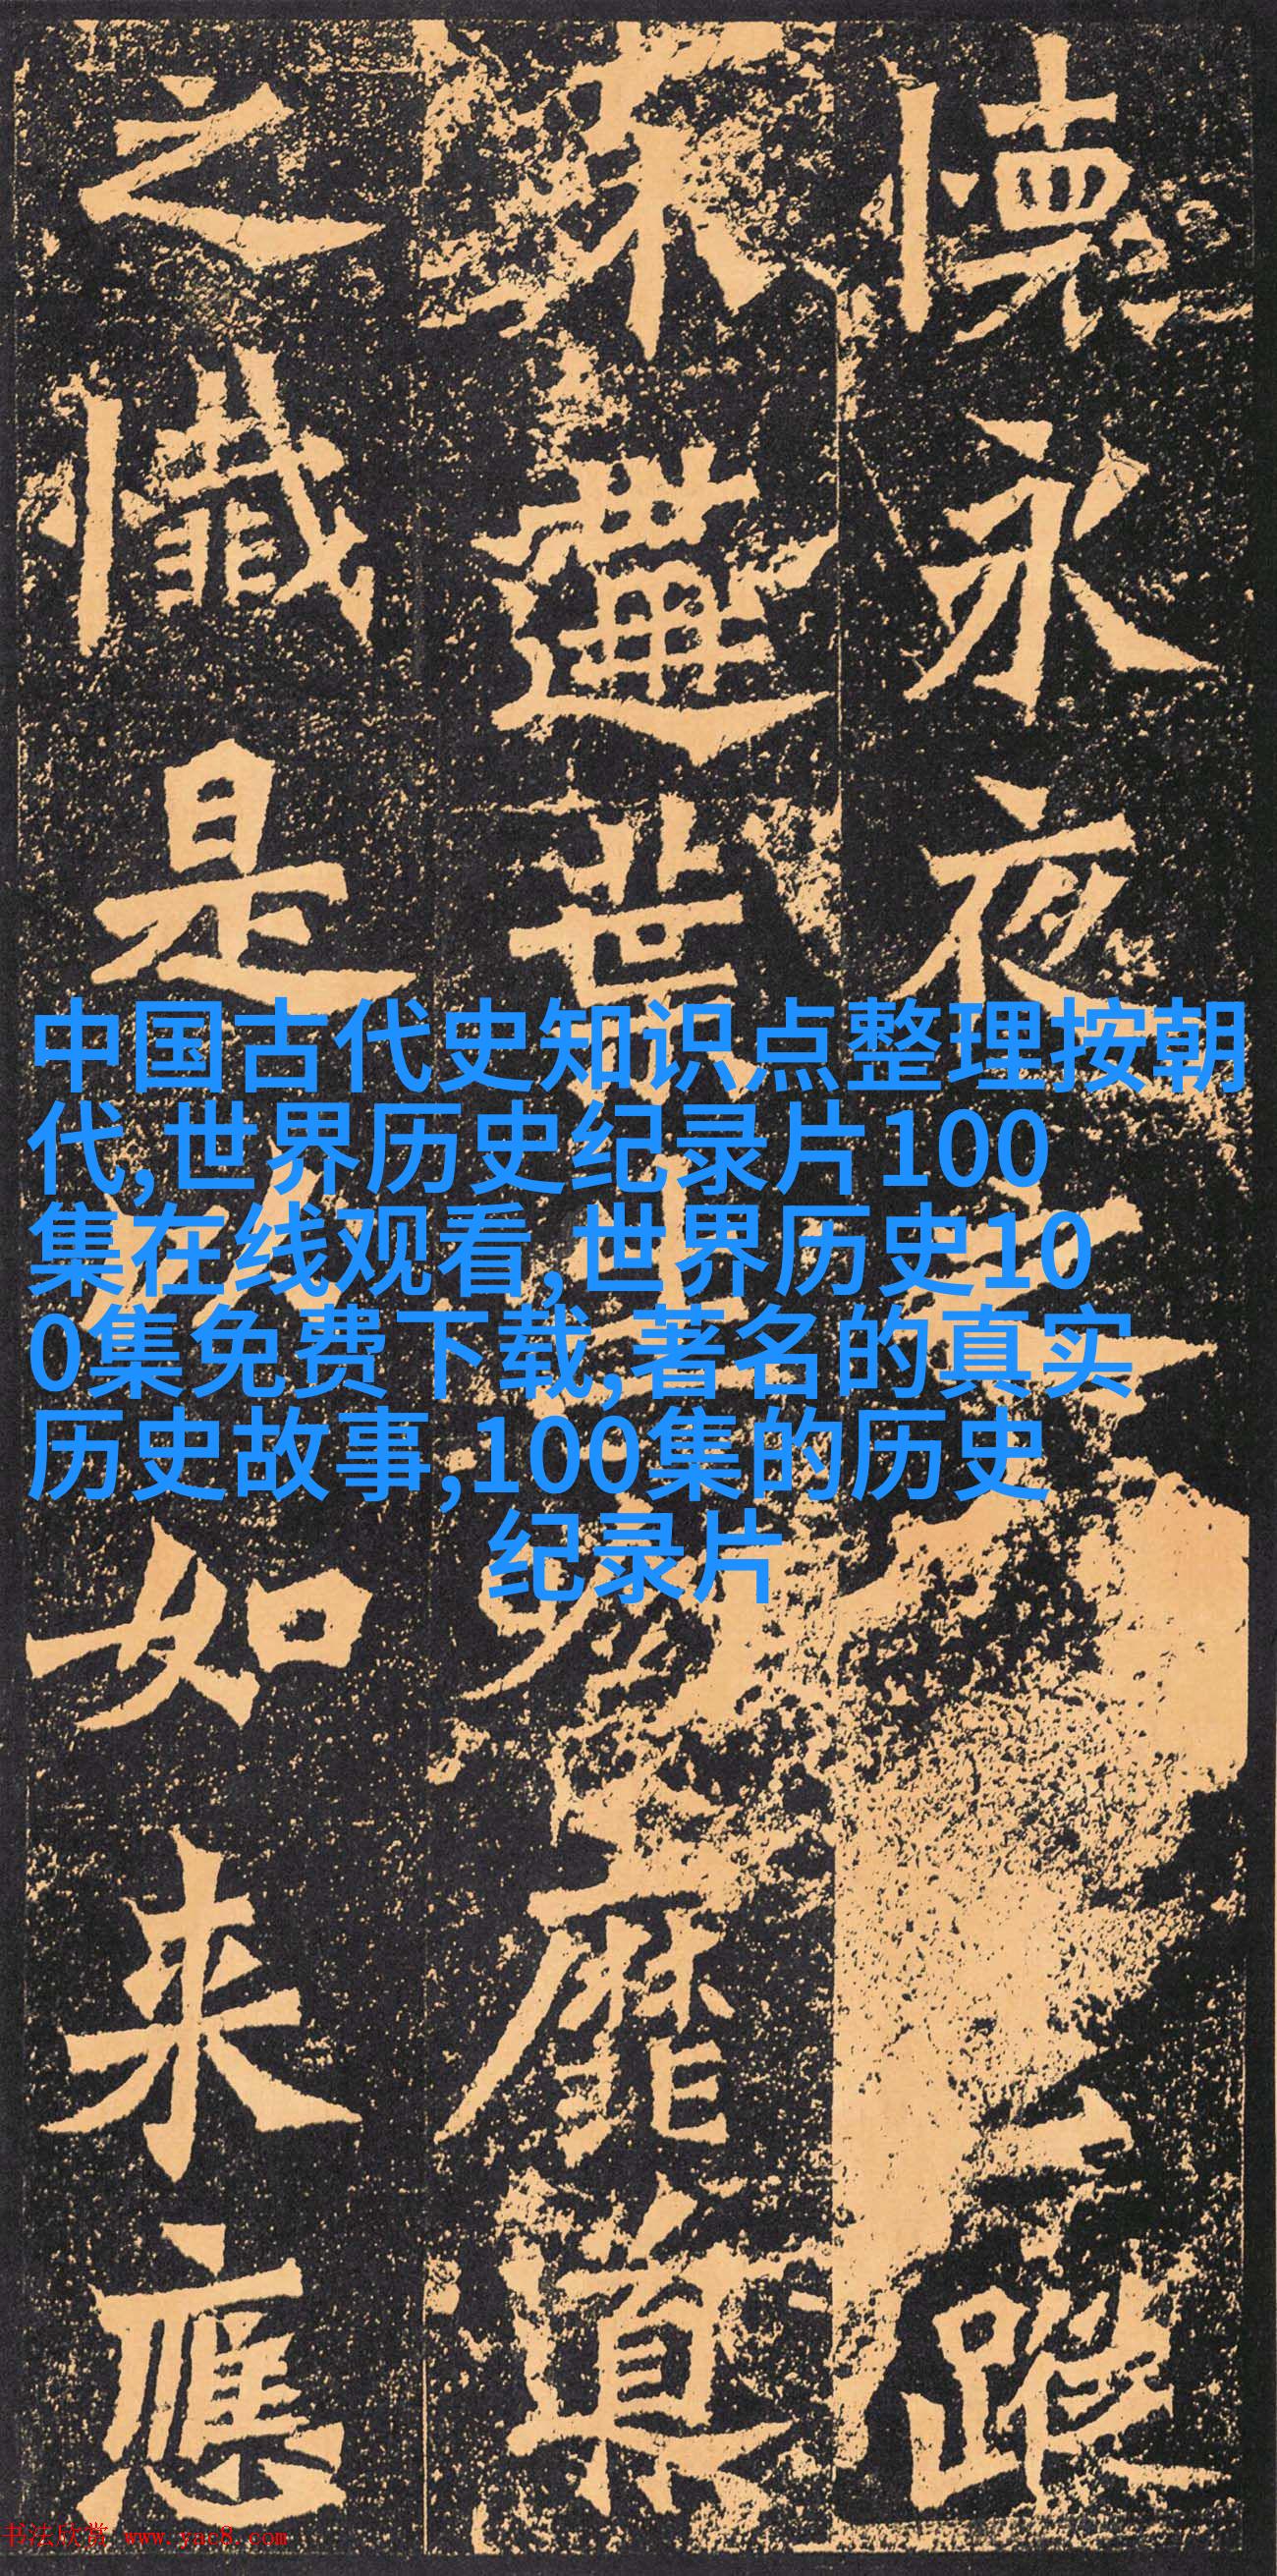 懷永夜
蹤
葉
靡真
之懺是
如来應
中国古代史知识点整理按朝
代,世界历史纪录片100
集在线观看,世界历史10
0集免费下载,著名的真实
历史故事,100集的历史
纪录片
书法欣赏 www.yac8.com